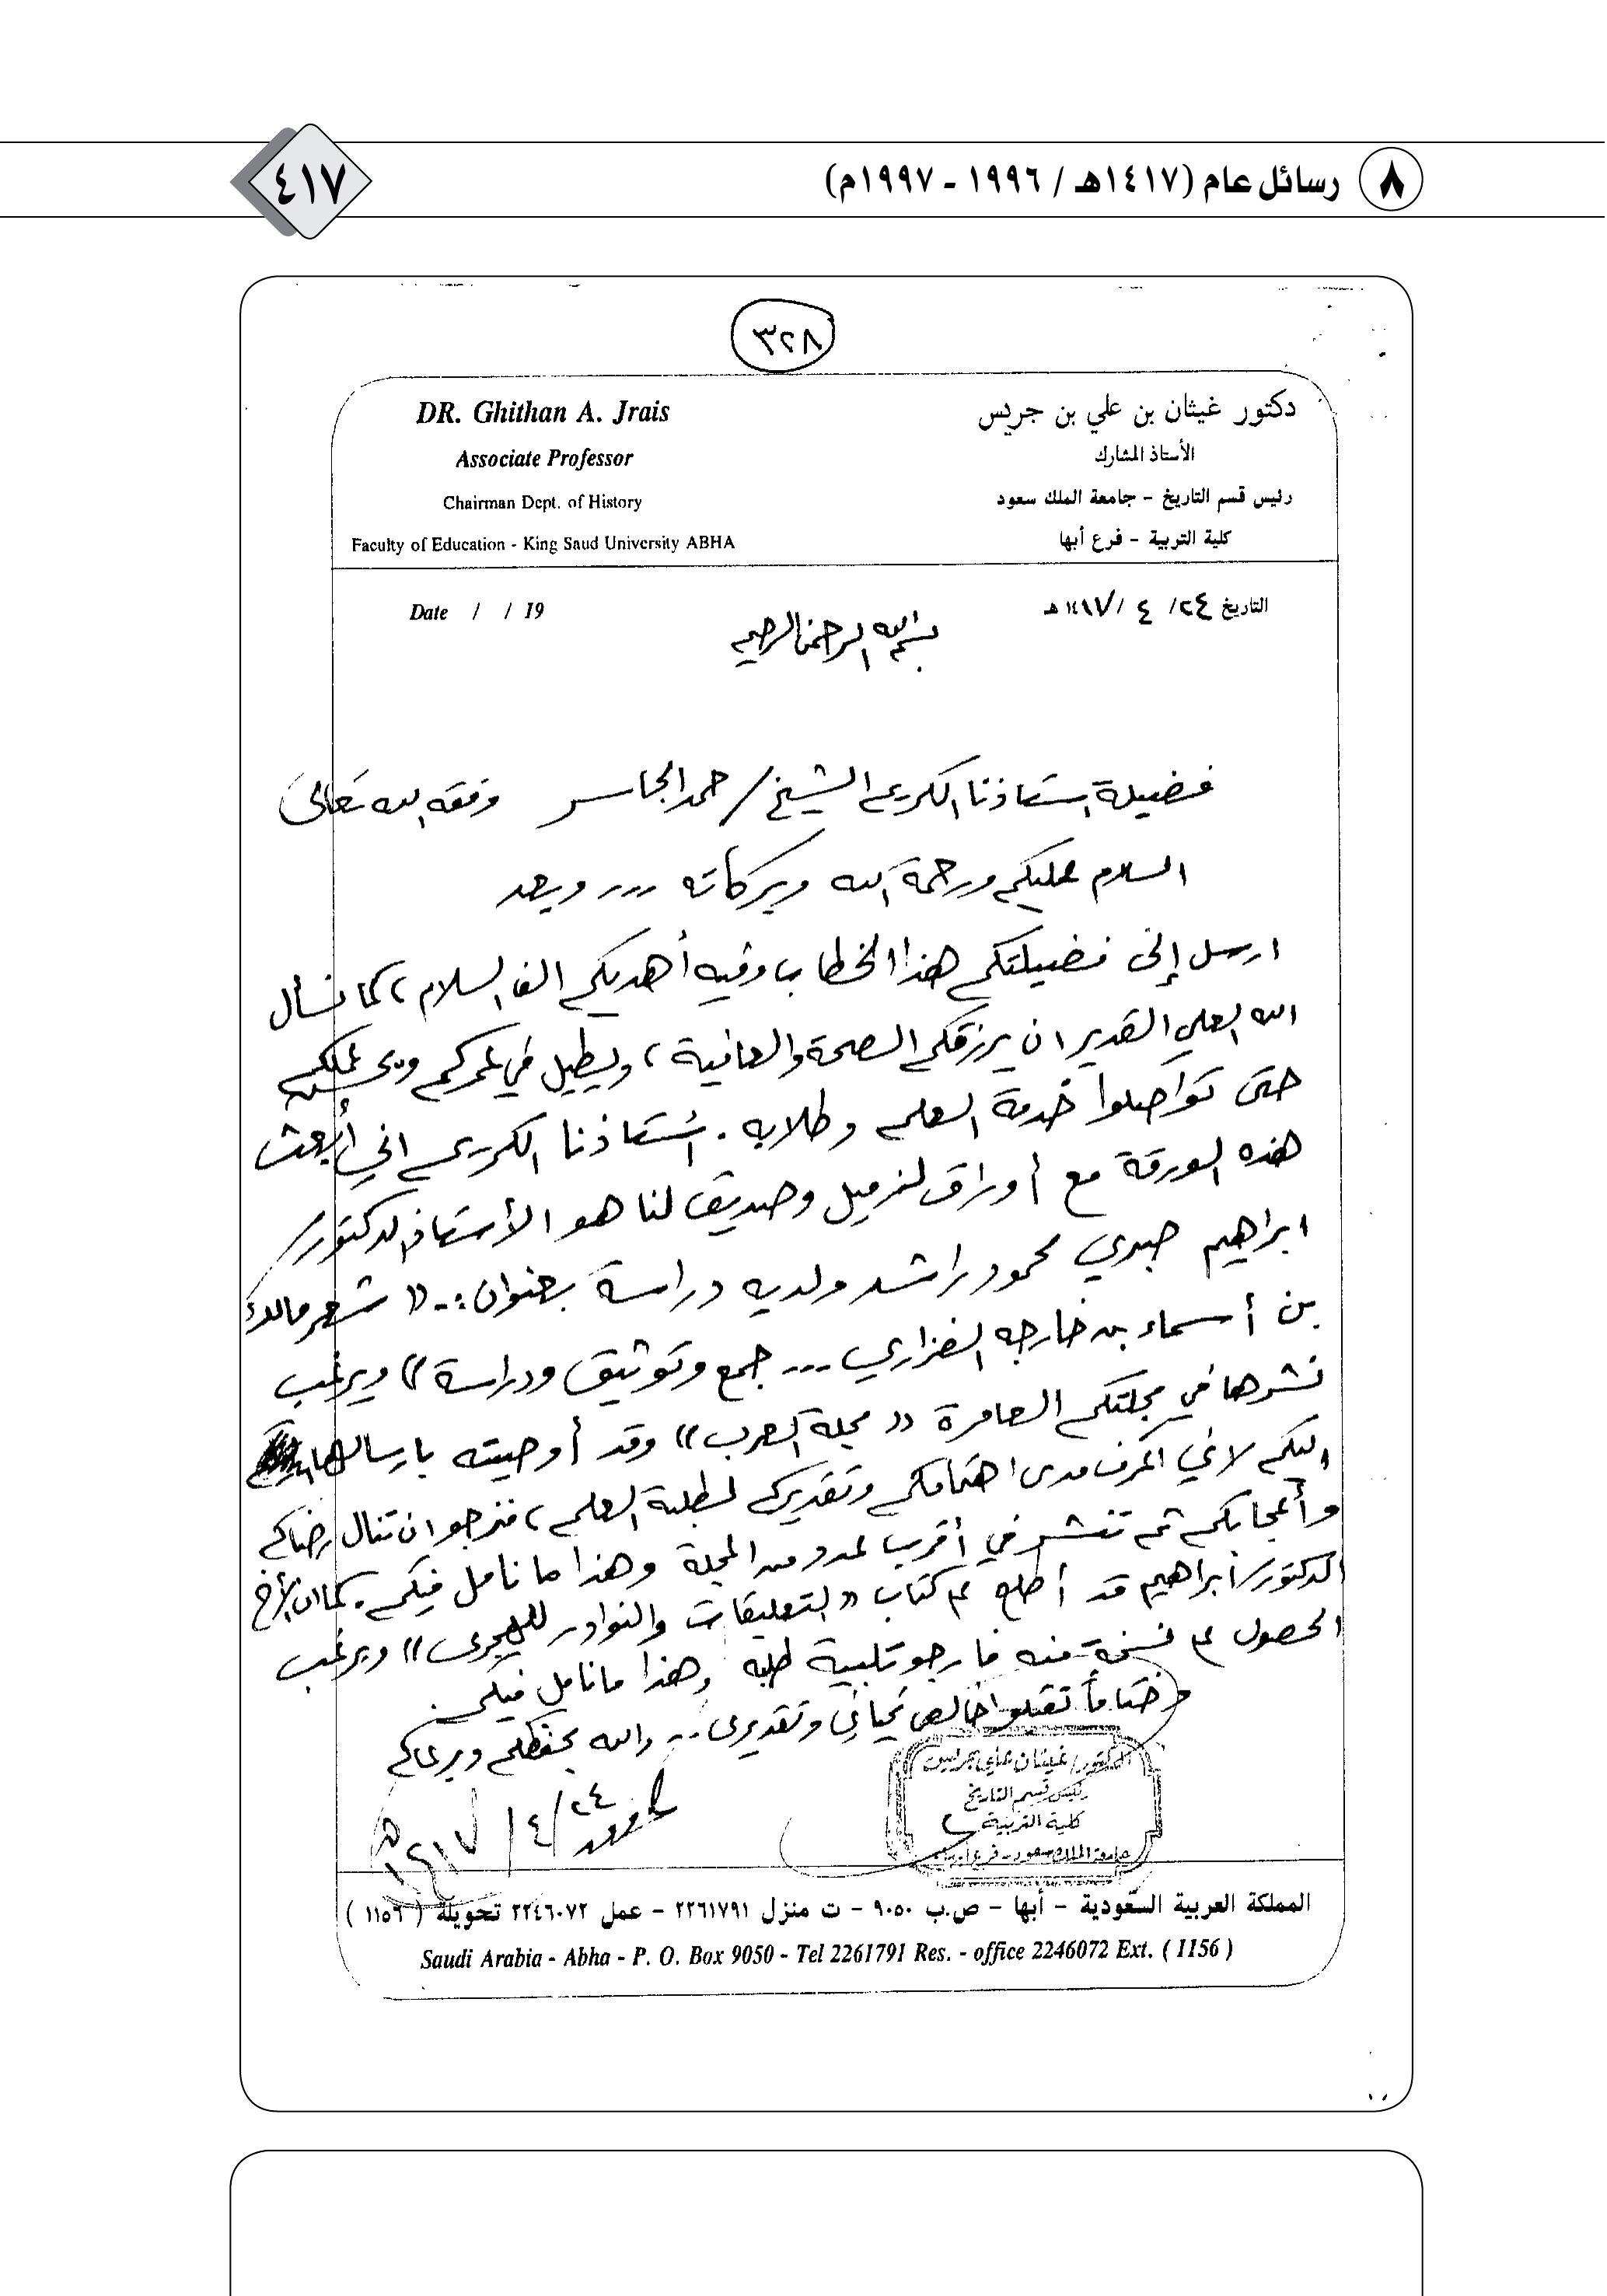 ٨ رسائل عام (١٤١٧هـ / ١٩٩٦ - ١٩٩٧م)
٤١٧
٣٢٨
دكتور غيثان بن علي بن جريس
الأستاذ المشارك
رئيس قسم التاريخ - جامعة الملك سعود
كلية التربية - فرع أبها
DR. Ghithan A. Jrais
Associate Professor
Chairman Dept. of History
Faculty of Education - King Saud University ABHA
التاريخ ٢٤/ ٤ /١٤١٧هـ
Date / / 19
بسم الله الرحمن الرحيم
فضيلة استاذنا الكريم الشيخ/ حمد الجاسر وفقه الله تعالى
السلام عليكم ورحمة الله وبركاته ... وبعد
ارسل إلى فضيلتكم هذا الخطاب وفيه أهديكم الف السلام، كما نسأل
الله العلي القدير ان يرزقكم الصحة والعافية، ويطيل في عمركم ويحسن عملكم
حتى تواصلوا خدمة العلم وطلابه. أستاذنا الكريم اني أبعث
هذه الورقة مع أوراق لزميل وصديق لنا هو الأستاذ الدكتور/
ابراهيم صبري محمود راشد ولديه دراسة بعنوان:ـ (( شعر مالك
بن أسماء بن خارجه الفزاري ... جمع وتوثيق ودراسة )) ويرغب
نشرها في مجلتكم العامرة (( مجلة العرب )) وقد أوصيته بارسالها
اليكم لاني اعرف مدى اهتمامكم وتقديركم لطلبة العلم، فنرجو ان تنال رضاكم
وأعجابكم ثم تنشر في أقرب عدد من المجلة وهذا ما نامل فيكم. كما ان الأخ
الدكتور/ ابراهيم قد أطلع على كتاب (( التعليقات والنوادر للهجري )) ويرغب
الحصول على نسخة منه فارجو تلبية طلبه وهذا ما نامل فيكم.
وختاماً تقبلوا خالص تحياتي وتقديري .. والله يحفظكم ويرعاكم
٢٤/ ٤/ ١٤١٧هـ
الدكتور/ غيثان علي جريس
رئيس قسم التاريخ
كلية التربية
جامعة الملك سعود - فرع أبها
المملكة العربية السعودية - أبها - ص.ب ٩٠٥٠ - ت منزل ٢٢٦١٧٩١ - عمل ٢٢٤٦٠٧٢ تحويلة ( ١١٥٦ )
Saudi Arabia - Abha - P. O. Box 9050 - Tel 2261791 Res. - office 2246072 Ext. ( 1156 )